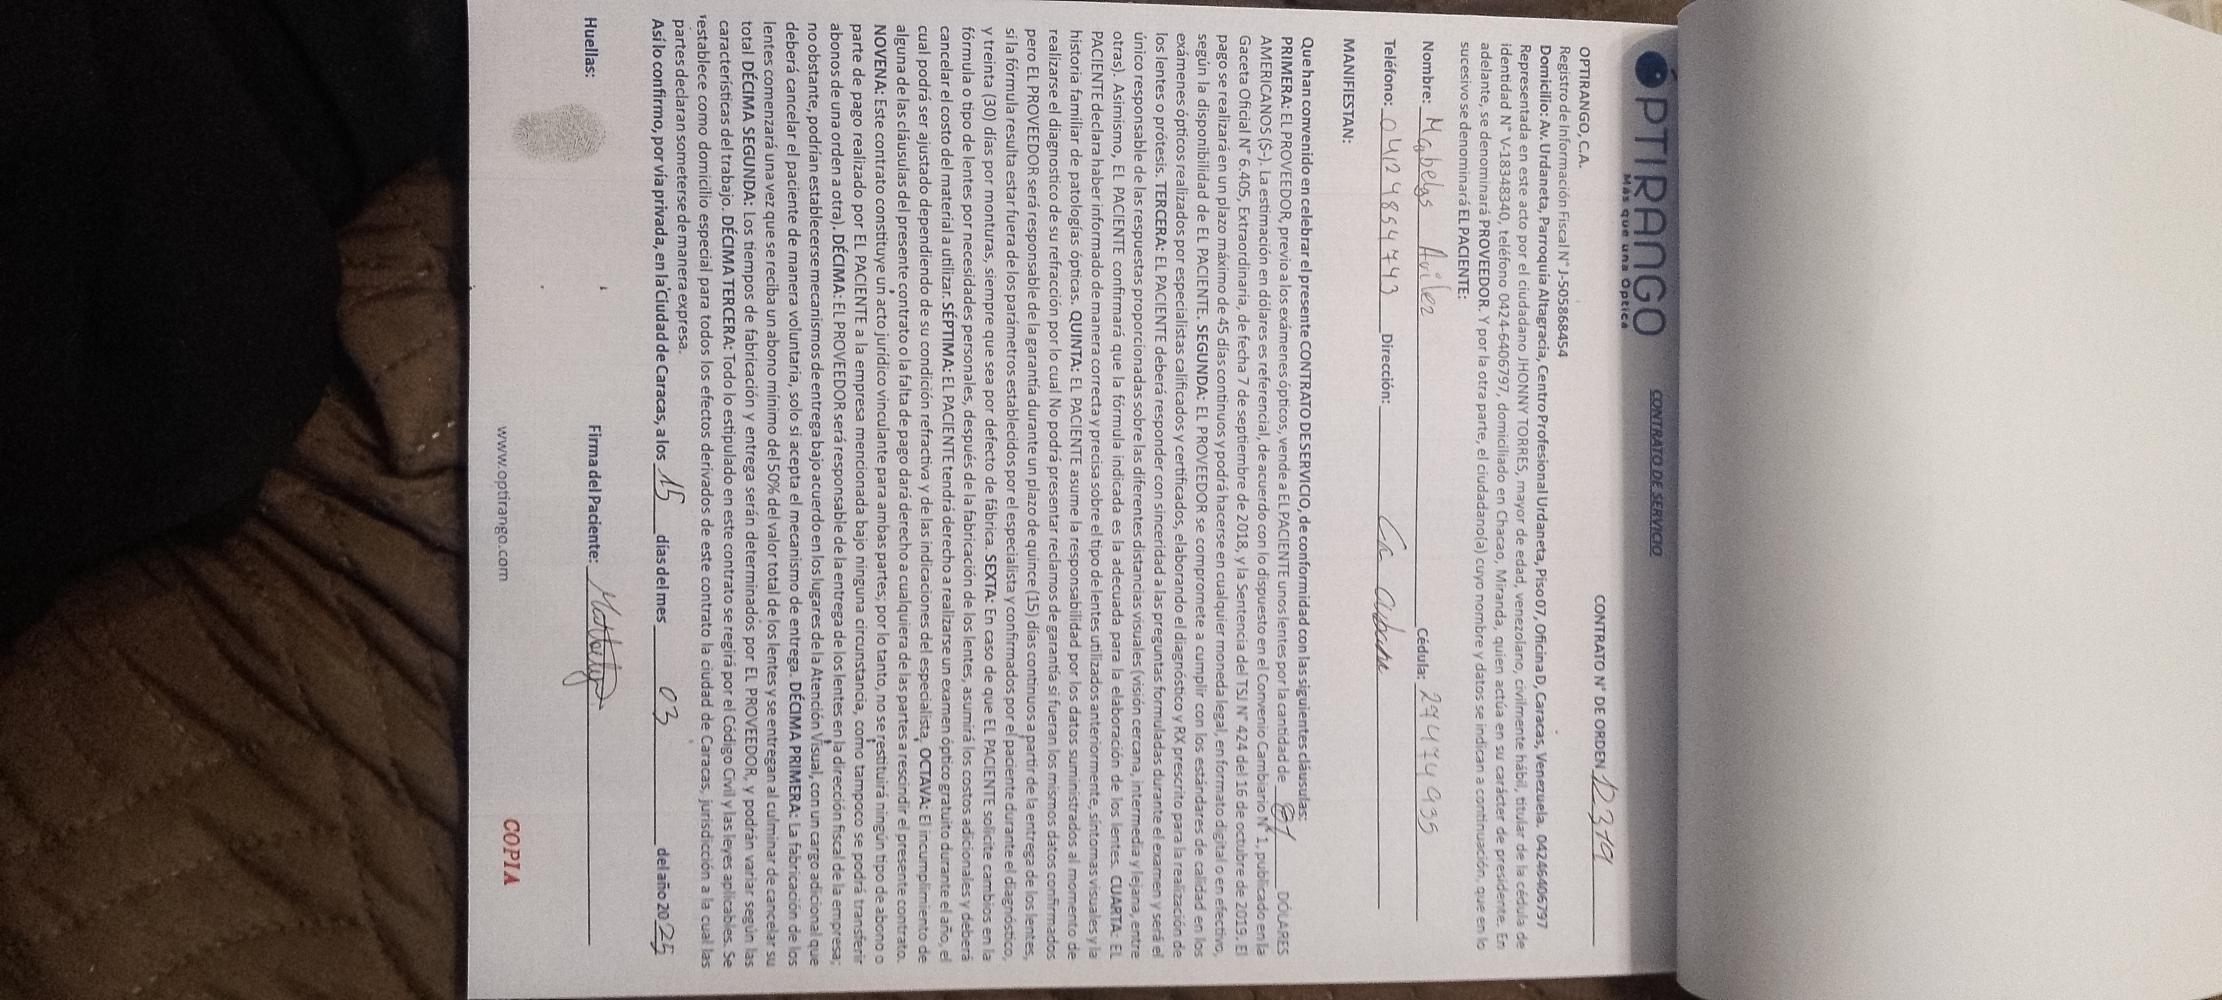 OPTIRANGO
Más que una Óptica
CONTRATO DE SERVICIO
CONTRATO N° DE ORDEN 12319
OPTIRANGO, C.A.
Registro de Información Fiscal N° J-505868454
Domicilio: Av. Urdaneta, Parroquia Altagracia, Centro Profesional Urdaneta, Piso 07, Oficina D, Caracas, Venezuela. 04246406797
Representada en este acto por el ciudadano JHONNY TORRES, mayor de edad, venezolano, civilmente hábil, titular de la cédula de
identidad N° V-18348340, teléfono 0424-6406797, domiciliado en Chacao, Miranda, quien actúa en su carácter de presidente. En
adelante, se denominará PROVEEDOR. Y por la otra parte, el ciudadano(a) cuyo nombre y datos se indican a continuación, que en lo
sucesivo se denominará EL PACIENTE:
Nombre: Mabelys Avilez Cédula: 27474935
Teléfono: 04124854743 Dirección: La
MANIFIESTAN:
Que han convenido en celebrar el presente CONTRATO DE SERVICIO, de conformidad con las siguientes cláusulas:
PRIMERA: EL PROVEEDOR, previo a los exámenes ópticos, vende a EL PACIENTE unos lentes por la cantidad de DÓLARES
AMERICANOS ($-). La estimación en dólares es referencial, de acuerdo con lo dispuesto en el Convenio Cambiario N° 1, publicado en la
Gaceta Oficial N° 6.405, Extraordinaria, de fecha 7 de septiembre de 2018, y la Sentencia del TSJ N° 424 del 16 de octubre de 2019. El
pago se realizará en un plazo máximo de 45 días continuos y podrá hacerse en cualquier moneda legal, en formato digital o en efectivo,
según la disponibilidad de EL PACIENTE. SEGUNDA: EL PROVEEDOR se compromete a cumplir con los estándares de calidad en los
exámenes ópticos realizados por especialistas calificados y certificados, elaborando el diagnóstico y RX prescrito para la realización de
los lentes o prótesis. TERCERA: EL PACIENTE deberá responder con sinceridad a las preguntas formuladas durante el examen y será el
único responsable de las respuestas proporcionadas sobre las diferentes distancias visuales (visión cercana, intermedia y lejana, entre
otras). Asimismo, EL PACIENTE confirmará que la fórmula indicada es la adecuada para la elaboración de los lentes. CUARTA: EL
PACIENTE declara haber informado de manera correcta y precisa sobre el tipo de lentes utilizados anteriormente, síntomas visuales y la
historia familiar de patologías ópticas. QUINTA: EL PACIENTE asume la responsabilidad por los datos suministrados al momento de
realizarse el diagnostico de su refracción por lo cual No podrá presentar reclamos de garantía si fueran los mismos datos confirmados
pero EL PROVEEDOR será responsable de la garantía durante un plazo de quince (15) días continuos a partir de la entrega de los lentes,
si la fórmula resulta estar fuera de los parámetros establecidos por el especialista y confirmados por el paciente durante el diagnóstico,
y treinta (30) días por monturas, siempre que sea por defecto de fábrica. SEXTA: En caso de que EL PACIENTE solicite cambios en la
fórmula o tipo de lentes por necesidades personales, después de la fabricación de los lentes, asumirá los costos adicionales y deberá
cancelar el costo del material a utilizar. SÉPTIMA: EL PACIENTE tendrá derecho a realizarse un examen óptico gratuito durante el año, el
cual podrá ser ajustado dependiendo de su condición refractiva y de las indicaciones del especialista. OCTAVA: El incumplimiento de
alguna de las cláusulas del presente contrato o la falta de pago dará derecho a cualquiera de las partes a rescindir el presente contrato.
NOVENA: Este contrato constituye un acto jurídico vinculante para ambas partes; por lo tanto, no se restituirá ningún tipo de abono o
parte de pago realizado por EL PACIENTE a la empresa mencionada bajo ninguna circunstancia, como tampoco se podrá transferir
abonos de una orden a otra). DÉCIMA: EL PROVEEDOR será responsable de la entrega de los lentes en la dirección fiscal de la empresa;
no obstante, podrían establecerse mecanismos de entrega bajo acuerdo en los lugares de la Atención Visual, con un cargo adicional que
deberá cancelar el paciente de manera voluntaria, solo si acepta el mecanismo de entrega. DÉCIMA PRIMERA: La fabricación de los
lentes comenzará una vez que se reciba un abono mínimo del 50% del valor total de los lentes y se entregan al culminar de cancelar su
total DÉCIMA SEGUNDA: Los tiempos de fabricación y entrega serán determinados por EL PROVEEDOR, y podrán variar según las
características del trabajo. DÉCIMA TERCERA: Todo lo estipulado en este contrato se regirá por el Código Civil y las leyes aplicables. Se
establece como domicilio especial para todos los efectos derivados de este contrato la ciudad de Caracas, jurisdicción a la cual las
partes declaran someterse de manera expresa.
Así lo confirmo, por vía privada, en la Ciudad de Caracas, a los 15 días del mes 03 del año 2025
Huellas: Firma del Paciente:
www.optirango.com
COPIA